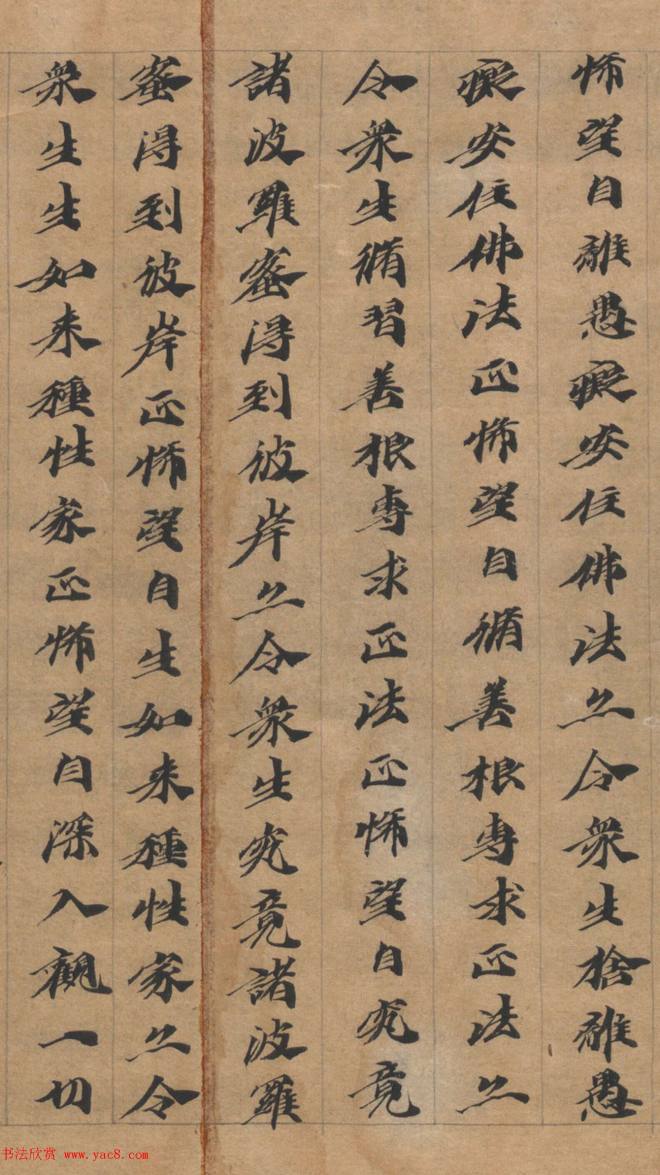 悕望自離愚癡安住佛法亦令衆生捨離愚
癡安住佛法正悕望自脩善根專求正法亦
令衆生脩習善根專求正法正悕望自究竟
諸波羅蜜得到彼岸亦令衆生究竟諸波羅
蜜得到彼岸正悕望自生如来種性家亦令
衆生生如来種性家正悕望自深入觀一切
书法欣赏 www.yac8.com